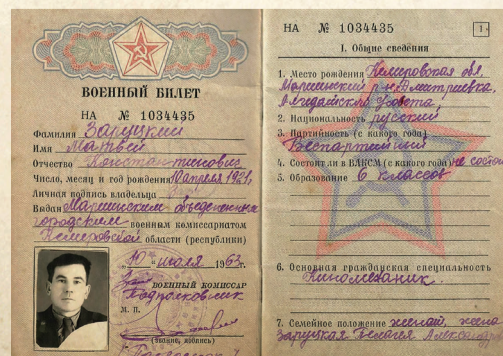 ВОЕННЫЙ БИЛЕТ
НА № 1034435
Фамилия Заруцкий
Имя Матвей
Отчество Константинович
Число, месяц и год рождения 10 апреля 1921,
Личная подпись владельца
Выдан Мариинским объединенным
городским военным комиссариатом
Кемеровской области (республики)
„10" июля 1963 г.
ВОЕННЫЙ КОМИССАР
Подполковник
М. П.
(звание, подпись)
НА № 1034435
1
I. Общие сведения
1. Место рождения Кемеровская обл.
Мариинский р-н Дмитриевка,
2. Национальность русский
3. Партийность (с какого года)
Беспартийный
4. Состоял ли в ВЛКСМ (с какого года) не состоял
5. Образование 6 классов
6. Основная гражданская специальность
Киномеханик.
7. Семейное положение женат, жена
Заруцкая Пелагея Александр